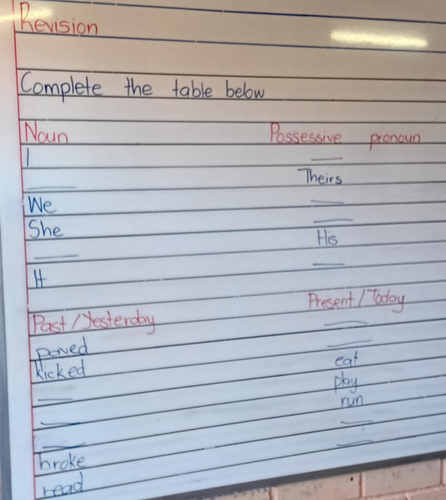 Revision
Complete the table below
Noun Possessive pronoun
I __
__ Theirs
We __
She __
__ His
It __
Past/Yesterday Present/Today
paved __
kicked __
__ eat
__ play
__ run
broke __
read __